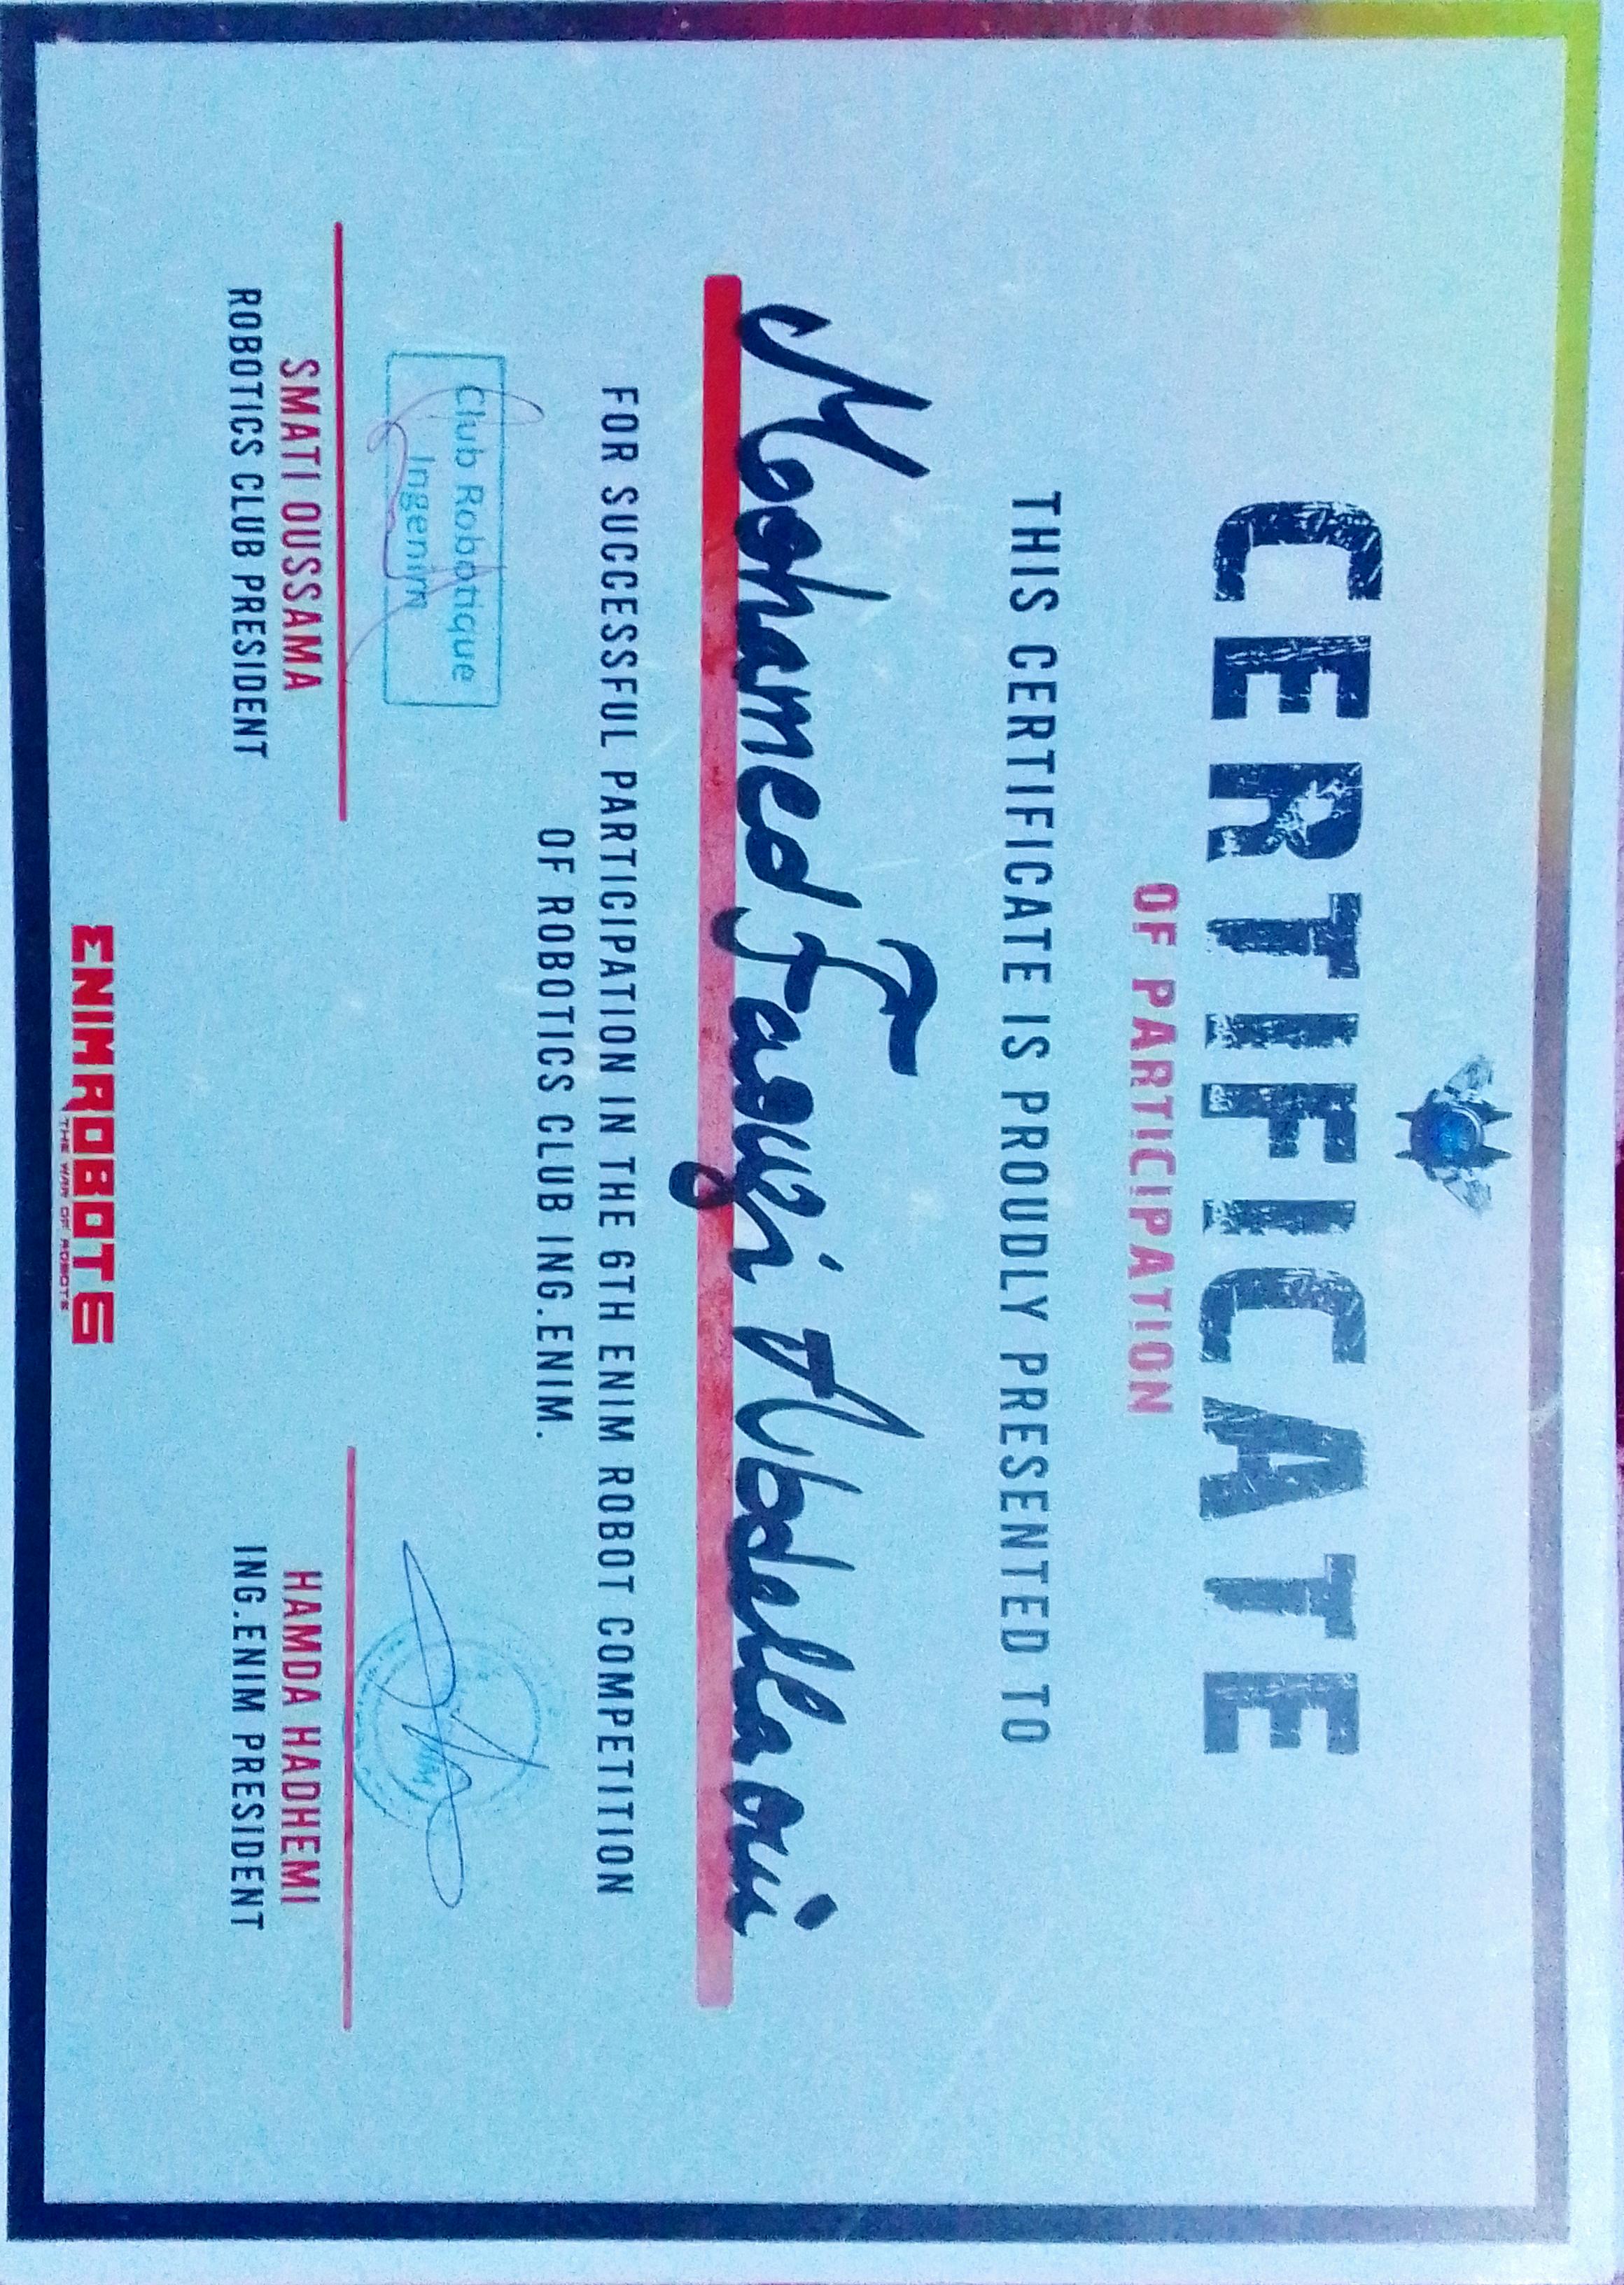 CERTIFICATE
OF PARTICIPATION
THIS CERTIFICATE IS PROUDLY PRESENTED TO
Mohamed Faouzi Abdellaoui
FOR SUCCESSFUL PARTICIPATION IN THE 6TH ENIM ROBOT COMPETITION
OF ROBOTICS CLUB ING.ENIM.
Club Robotique
Ingenim
SMATI OUSSAMA
ROBOTICS CLUB PRESIDENT
HAMDA HADHEMI
ING.ENIM PRESIDENT
ENIMROBOTS
THE WAR OF ROBOTS